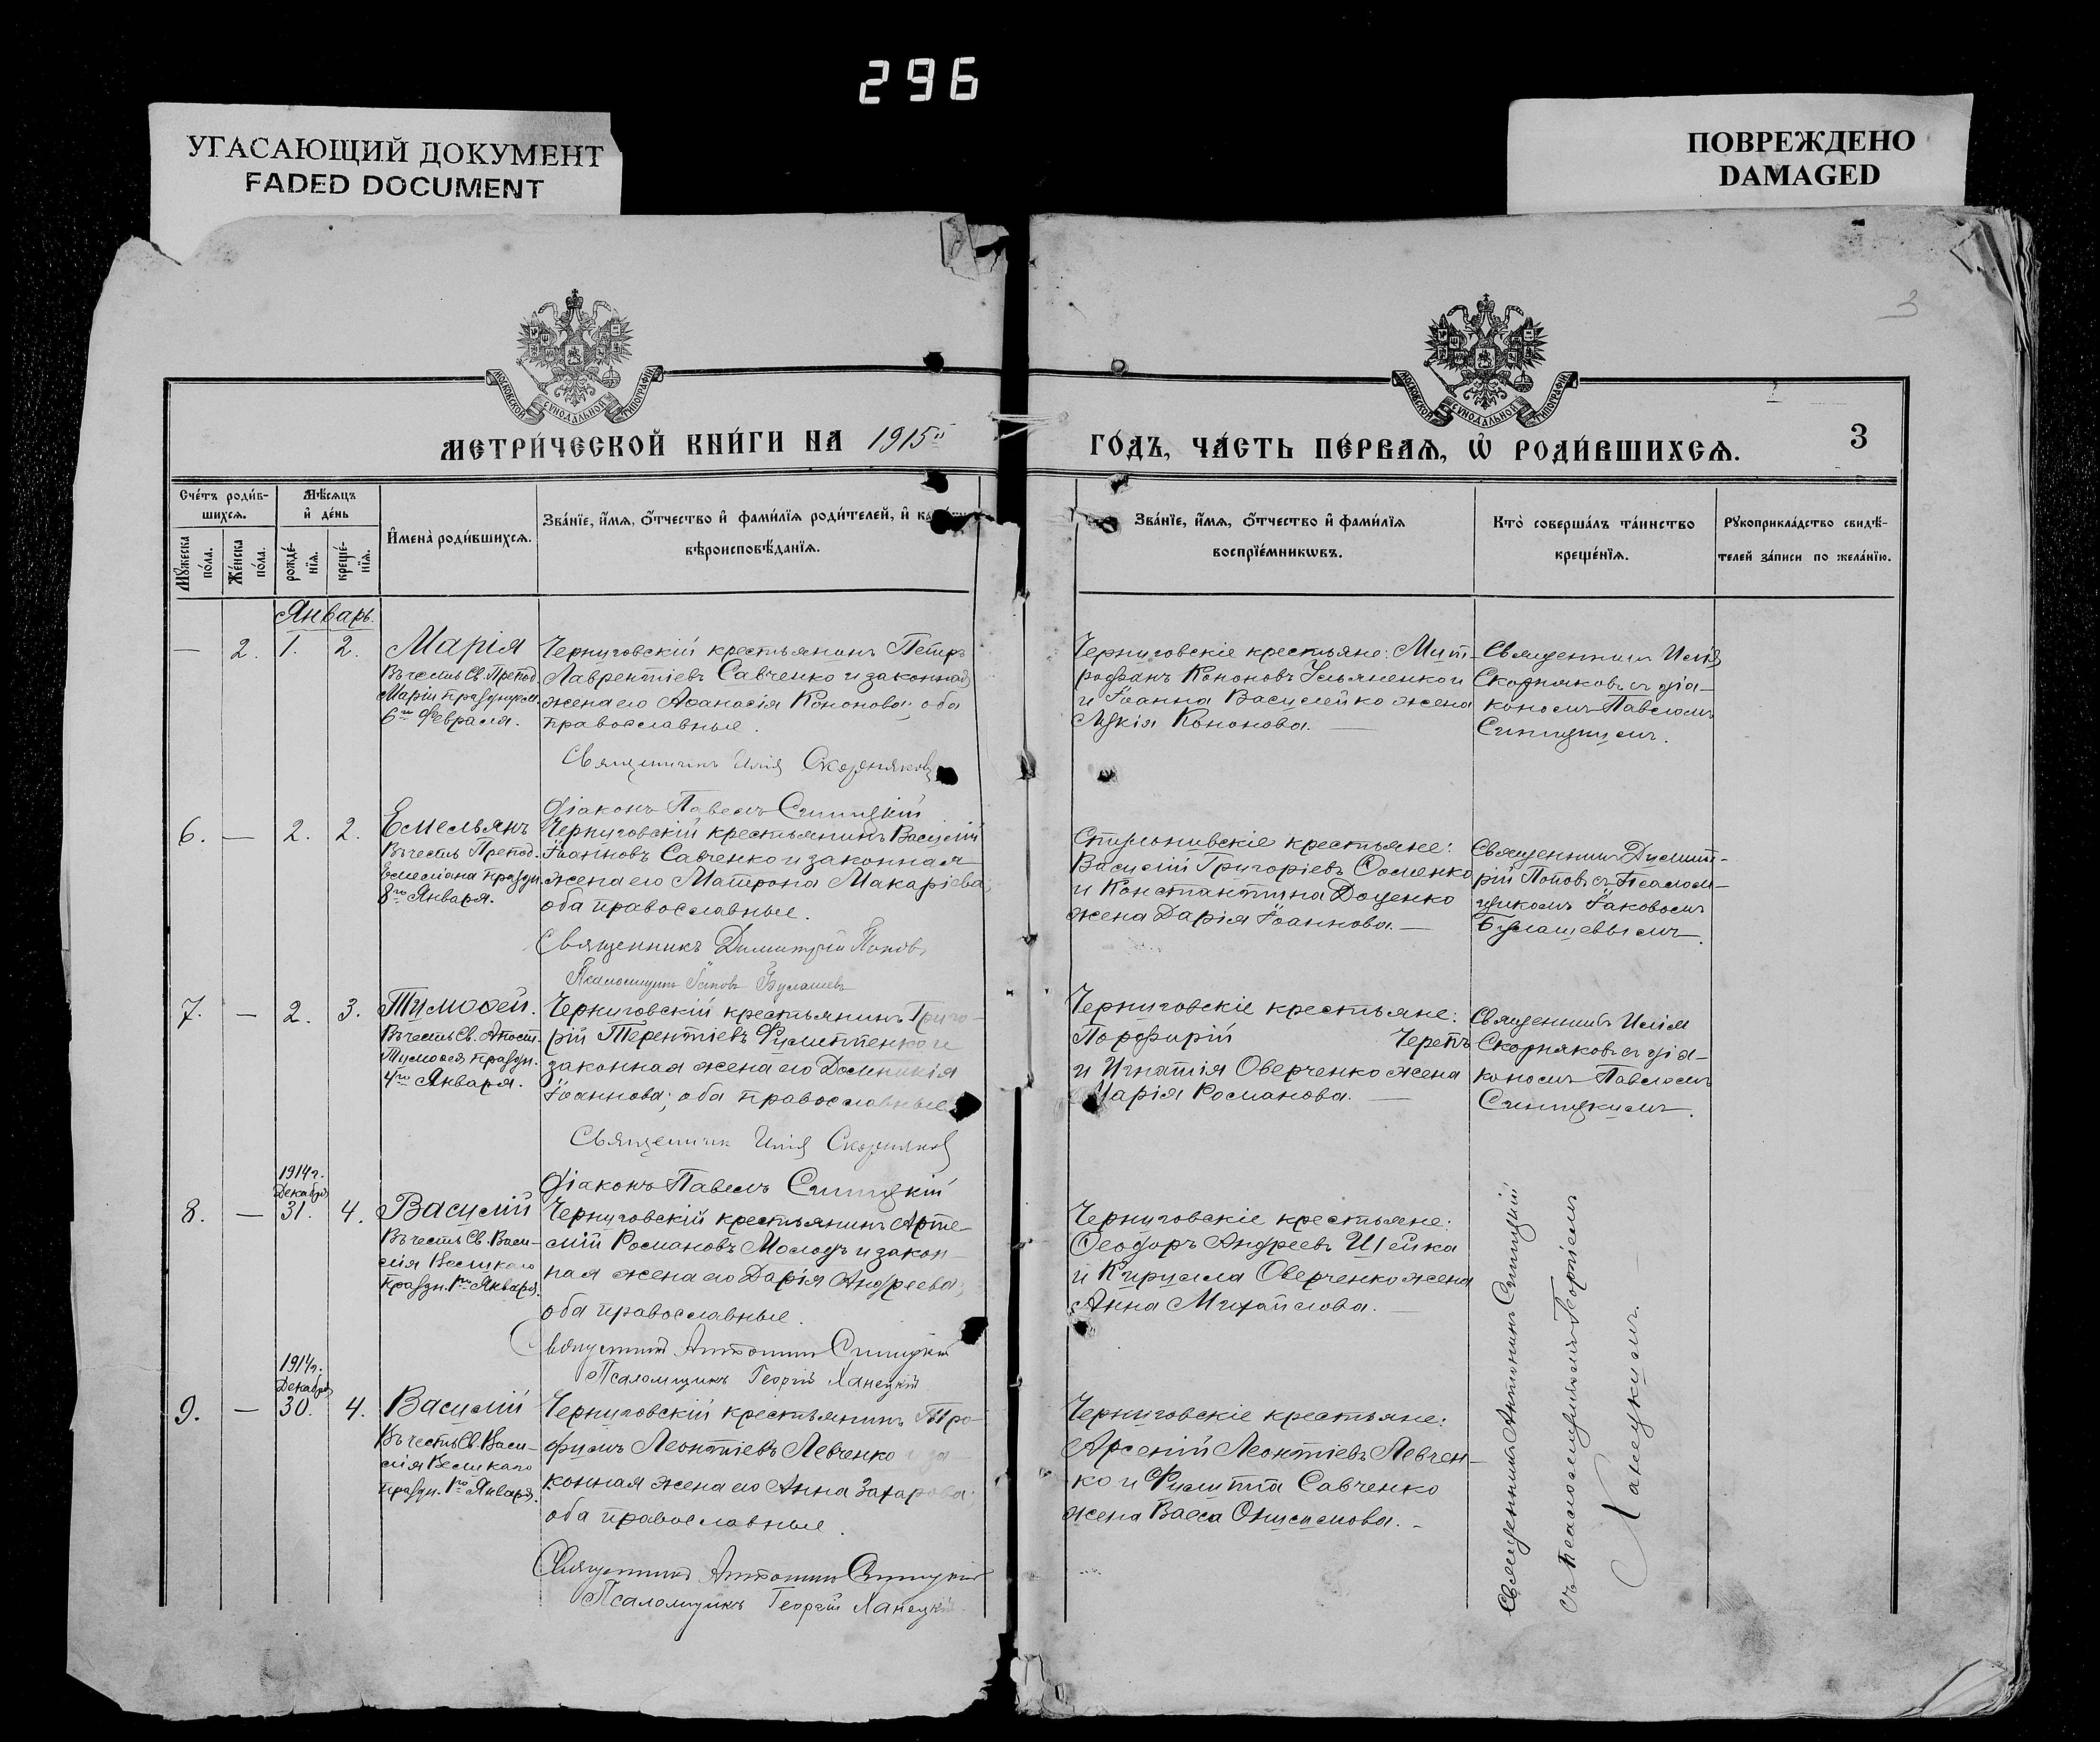 296
УГАСАЮЩИЙ ДОКУМЕНТ
FADED DOCUMENT
ПОВРЕЖДЕНО
DAMAGED
3
МОСКОВСКОЙ СѴНОДАЛЬНОЙ ТИПОГРАФІИ
МОСКОВСКОЙ СѴНОДАЛЬНОЙ ТИПОГРАФІИ
МЕТРИ́ЧЕСКОЙ КНИ́ГИ НА 1915й
ГО́ДЪ, ЧА́СТЬ ПЕ́РВАЯ, Ѡ҆ РОДИ́ВШИХСЯ.
3
Сче́тъ роди́в-
шихся.
Мѣ́сяцъ
и҆ де́нь
Му́жеска
по́ла.
Же́нска
по́ла.
рожде́-
нїя.
креще́-
нїя.
И҆мена̀ роди́вшихся.
Зва́нїе, и҆́мя, ѻ҆́тчество и҆ фами́лїя роди́телей, и҆
вѣроисповѣ́данїя.
Зва́нїе, и҆́мя, ѻ҆́тчество и҆ фами́лїя
воспрїе́мникѡвъ.
Кто̀ соверша́лъ та́инство
креще́нїя.
Рꙋкоприкла́дство свидѣ́-
телей за́писи по жела́нїю.
Январь.
— 2. 1. 2. Марія
Въ честь Св. Препод.
Маріи праздникъ
6го Февраля.
Черниговскій крестьянинъ Петръ
Лаврентіевъ Савченко и законная
жена его Аѳанасія Кононова; оба
православные.
Священникъ Илія Скорняковъ
Діаконъ Павелъ Синицкій
Черниговскіе крестьяне: Мит-
рофанъ Кононовъ Ульяненко и
и Іоанна Василейко жена
Лукія Кононова. —
Священникъ Илія
Скорняковъ съ діа-
кономъ Павломъ
Синицкимъ.
6. — 2. 2. Емельянъ
Въ честь Препод.
Емеліана праздн.
8го Января.
Черниговскій крестьянинъ Василій
Іоанновъ Савченко и законная
жена его Матрона Макаріева;
оба православные.
Священникъ Димитрій Поповъ
Псаломщикъ Іаковъ Булашевъ
крестьяне:
Василій Григоріевъ Ѳоменко
и Константина Доценко
жена Дарія Іоаннова. —
Священникъ Димит-
рій Поповъ съ Псалом-
щикомъ Іаковомъ
Булашевымъ.
7. — 2. 3. Тимоѳей.
Въ честь Св. Апост.
Тимоѳея праздн.
4го Января.
Черниговскій крестьянинъ Григо-
рій Терентіевъ Филиппенко и
законная жена его Домникія
Іоаннова; оба православные
Священникъ Илія Скорняковъ
Діаконъ Павелъ Синицкій
Черниговскіе крестьяне:
Порфирій Черепъ
и Игнатія Оверченко жена
Марія Романова. —
Священникъ Илія
Скорняковъ съ діа-
кономъ Павломъ
Синицкимъ.
1914 г.
Декабря
8. — 31. 4. Василій
Въ честь Св. Васи-
лія Великаго
праздн. 1го Января.
Черниговскій крестьянинъ Арте-
мій Романовъ Молодъ и закон-
ная жена его Дарія Андреева;
оба православные.
Священникъ Антонинъ Синицкій
Псаломщикъ Георгій Ханецкій
Черниговскіе крестьяне:
Ѳеодоръ Андреевъ Шейка
и Кирилла Оверченко жена
Анна Михайлова. —
1914 г.
Декабря
9. — 30. 4. Василій
Въ честь Св. Васи-
лія Великаго
праздн. 1го Января.
Черниговскій крестьянинъ Тро-
фимъ Леонтіевъ Левченко и за-
конная жена его Анна Захарова;
оба православные.
Священникъ Антонинъ Синицкій
Псаломщикъ Георгій Ханецкій
Черниговскіе крестьяне:
Арсеній Леонтіевъ Левчен-
ко и Филиппа Савченко
жена Васса Онисимова. -
Священникъ Антонинъ Синицкій
съ Псаломщикомъ Георгіемъ
Ханецкимъ. —